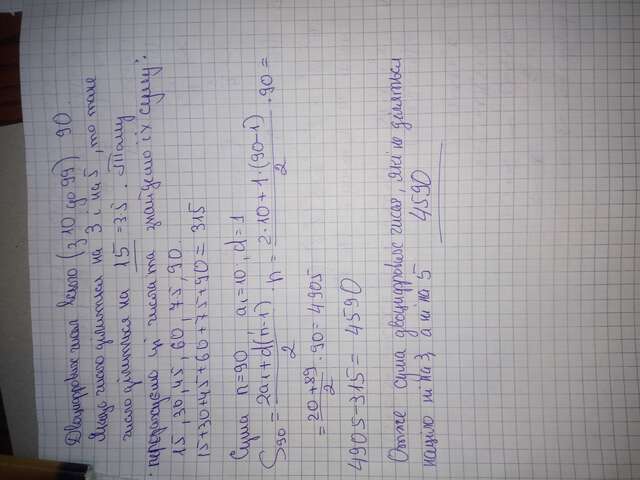 Двоцифрових чисел всього (з 10 до 99) 90.
Якщо число ділиться на 3 і на 5, то таке
число ділиться на 15 = 3·5. Тому
перерахуємо ці числа та знайдемо їх суму:
15, 30, 45, 60, 75, 90.
15+30+45+60+75+90 = 315
Сума n=90 a₁=10, d=1
S₉₀ = (2a₁+d(n-1))/2 · n = (2·10+1·(90-1))/2 · 90 =
= (20+89)/2 · 90 = 4905
4905-315 = 4590
Отже сума двоцифрових чисел, які не діляться
націло ні на 3, а ні на 5 4590